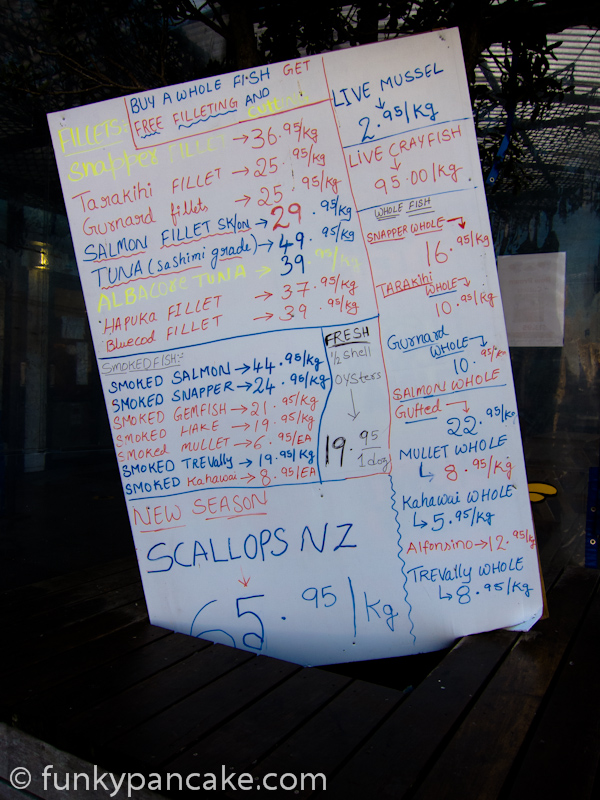 BUY A WHOLE FISH GET
FREE FILLETING AND
FILLETS:-
Snapper FILLET → 36.95/Kg
Tarakihi FILLET → 25.95/Kg
Gurnard fillets → 25.95/Kg
SALMON FILLET SK/ON → 29.95/Kg
TUNA (Sashimi grade) → 49.95/Kg
ALBACORE TUNA → 39.95/Kg
HAPUKA FILLET → 37.95/Kg
Bluecod FILLET → 39.95/Kg
SMOKED FISH:-
SMOKED SALMON → 44.95/Kg
SMOKED SNAPPER → 24.95/Kg
SMOKED GEMFISH → 21.95/Kg
SMOKED HAKE → 19.95/Kg
SMOKED MULLET → 6.95/EA
SMOKED TREVally → 19.95/Kg
SMOKED Kahawai → 8.95/EA
FRESH
1/2 shell
OYSTERS
19.95
1 doz
NEW SEASON
SCALLOPS NZ
65.95/Kg
LIVE MUSSEL
2.95/Kg
LIVE CRAYFISH
95.00/Kg
WHOLE FISH
SNAPPER WHOLE →
16.95/Kg
TARAKIHI
WHOLE →
10.95/Kg
Gurnard
WHOLE →
10.95/Kg
SALMON WHOLE
Gutted →
22.95/Kg
MULLET WHOLE
↳ 8.95/Kg
Kahawai WHOLE
↳ 5.95/Kg
Alfonsino → 12.95/Kg
TREVally WHOLE
↳ 8.95/Kg
© funkypancake.com